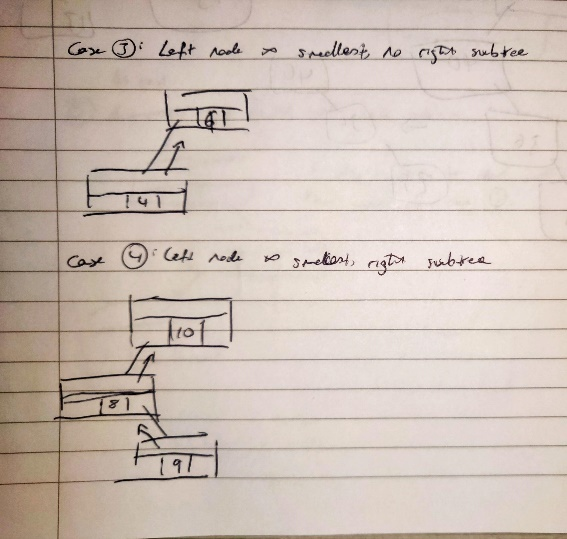 Case ③: Left node is smallest, no right subtree
|6|
|4|
Case ④: Left node is smallest, right subtree
|10|
|8|
|9|